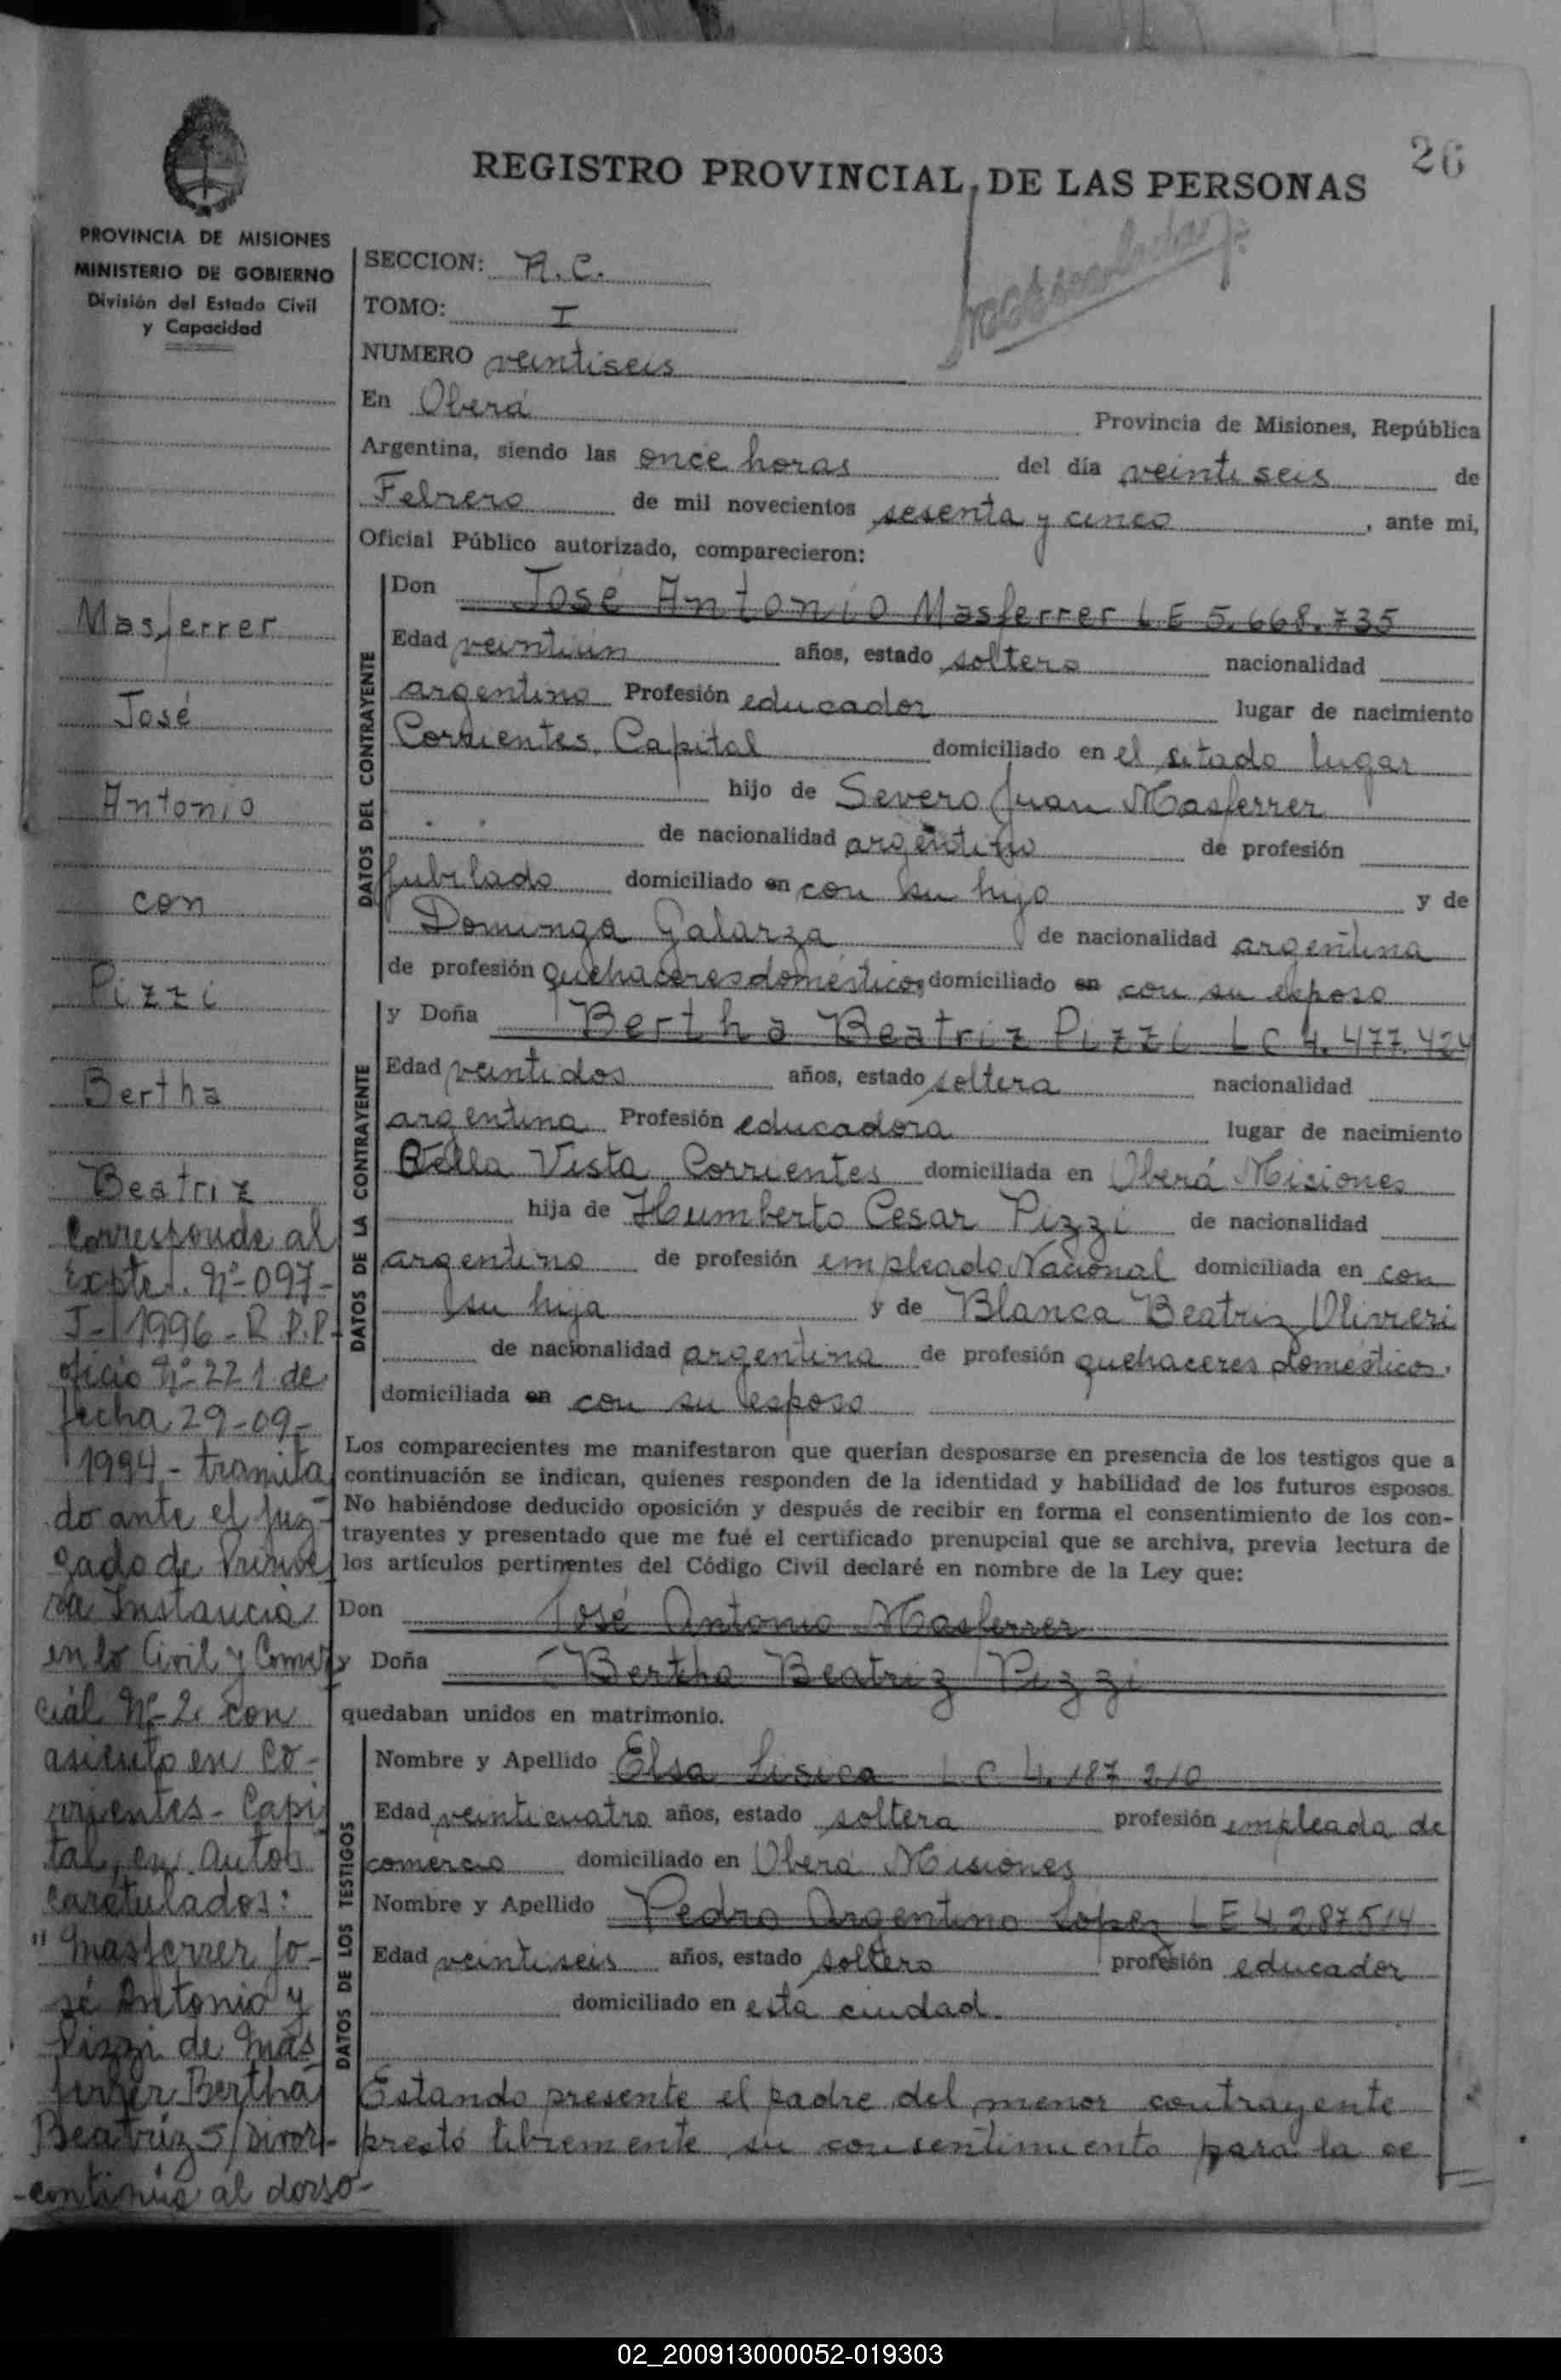 26
REGISTRO PROVINCIAL DE LAS PERSONAS
PROVINCIA DE MISIONES
MINISTERIO DE GOBIERNO
División del Estado Civil
y Capacidad
Masferrer
José
Antonio
con
Pizzi
Bertha
Beatriz
Corresponde al
Expte. Nº-097-
1996-R.P.P-
oficio Nº-221 de
fecha 29-09-
1994- tramita
do ante el Juz-
gado de Prime
ra Instancia
en lo Civil y Comer
cial Nº-2 con
asiento en Co-
rrientes- Capi
tal, en Autos
caratulados:
"Masferrer Jo-
sé Antonio y
Pizzi de Mas
ferrer Bertha
Beatriz S/Divor-
-continúa al dorso-
SECCION: R.C.
TOMO: I
NUMERO veintiseis
En Oberá Provincia de Misiones, República
Argentina, siendo las once horas del día veintiseis de
Febrero de mil novecientos sesenta y cinco, ante mi,
Oficial Público autorizado, comparecieron:
DATOS DEL CONTRAYENTE
Don José Antonio Masferrer L E 5.668.735
Edad veintiún años, estado soltero nacionalidad
argentino Profesión educador lugar de nacimiento
Corrientes Capital domiciliado en el sitado lugar
hijo de Severo Juan Masferrer
de nacionalidad argentino de profesión
Jubilado domiciliado en con su hijo y de
Dominga Galarza de nacionalidad argentina
de profesión quehaceres domésticos domiciliado en con su esposo
DATOS DE LA CONTRAYENTE
y Doña Bertha Beatriz Pizzi L C 4.477.424
Edad veintidos años, estado soltera nacionalidad
argentina Profesión educadora lugar de nacimiento
Bella Vista Corrientes domiciliada en Oberá Misiones
hija de Humberto Cesar Pizzi de nacionalidad
argentino de profesión empleado Nacional domiciliada en con
su hija y de Blanca Beatriz Olivieri
de nacionalidad argentina de profesión quehaceres domésticos.
domiciliada en con su esposo
Los comparecientes me manifestaron que querían desposarse en presencia de los testigos que a
continuación se indican, quienes responden de la identidad y habilidad de los futuros esposos.
No habiéndose deducido oposición y después de recibir en forma el consentimiento de los con-
trayentes y presentado que me fué el certificado prenupcial que se archiva, previa lectura de
los artículos pertinentes del Código Civil declaré en nombre de la Ley que:
Don José Antonio Masferrer
y Doña Bertha Beatriz Pizzi
quedaban unidos en matrimonio.
DATOS DE LOS TESTIGOS
Nombre y Apellido Elsa L C 4.187.210
Edad veinticuatro años, estado soltera profesión empleada de
comercio domiciliado en Oberá Misiones
Nombre y Apellido Pedro Argentino López L E 4.287.514
Edad veintiseis años, estado soltero profesión educador
domiciliado en esta ciudad.
Estando presente el padre del menor contrayente
prestó libremente su consentimiento para la ce
02_200913000052-019303